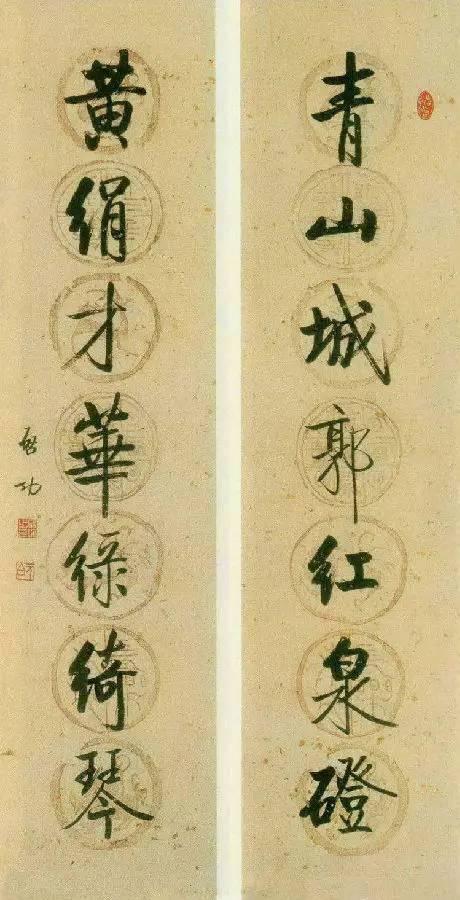 青山城郭红泉磴
黄絹才華綠綺琴
启功